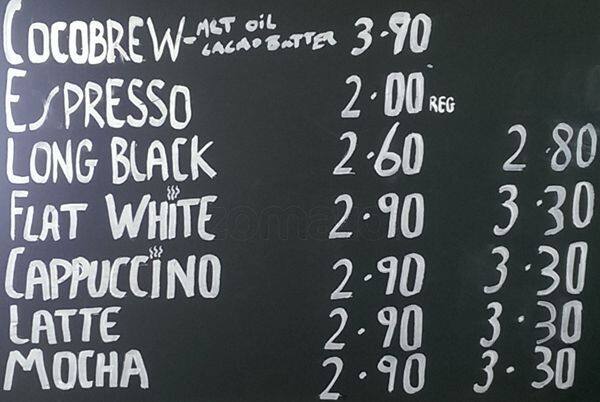 COCOBREW-MCT OIL CACAO BUTTER 3.90
ESPRESSO 2.00 REG
LONG BLACK 2.60 2.80
FLAT WHITE 2.90 3.30
CAPPUCCINO 2.90 3.30
LATTE 2.90 3.30
MOCHA 2.90 3.30